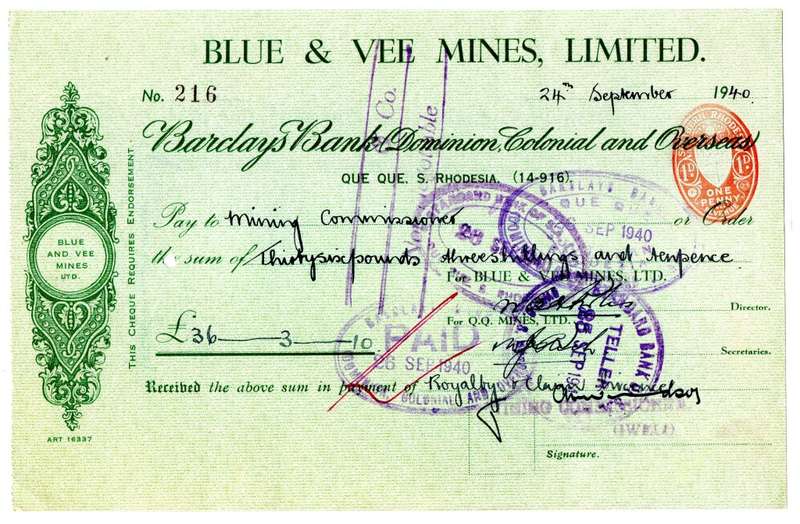 BLUE & VEE MINES, LIMITED.
No. 216
24th September 1940.
Barclays Bank (Dominion, Colonial and Overseas)
QUE QUE, S. RHODESIA. (14-916).
Pay to Mining Commissioner or Order
the sum of Thirtysix pounds three shillings and tenpence
For BLUE & VEE MINES, LTD.
Director.
For Q.Q. MINES, LTD.
£36—3—10
Secretaries.
Received the above sum in payment of Royalty
Signature.
THIS CHEQUE REQUIRES ENDORSEMENT.
BLUE
AND VEE
MINES
LTD.
ART 16337
& Co.
Not Negotiable
1D. 1D.
ONE
PENNY
BARCLAYS BANK
QUE QUE
SEP 1940
PAID
26 SEP 1940
STANDARD BANK
TELLER
SEP 19
MINING COMMISSIONER